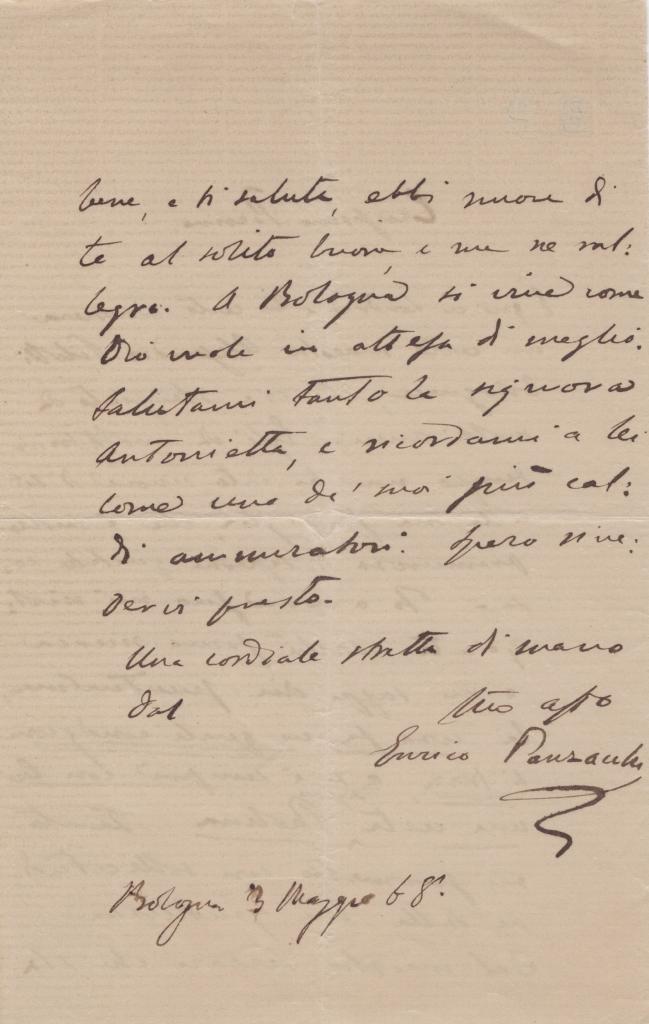 bene, e ti saluta, ebbi nuove di
te al solito buone, e me ne ral:
legro. A Bologna si vive come
Dio vuole in attesa di meglio.
Salutami tanto la signora
Antonietta, e ricordami a lei
come uno de' suoi più cal:
di ammiratori. Spero rive:
dervi presto.
Una cordiale stretta di mano
dal tuo affo
Enrico Panzacchi
Bologna 3 Maggio 68.